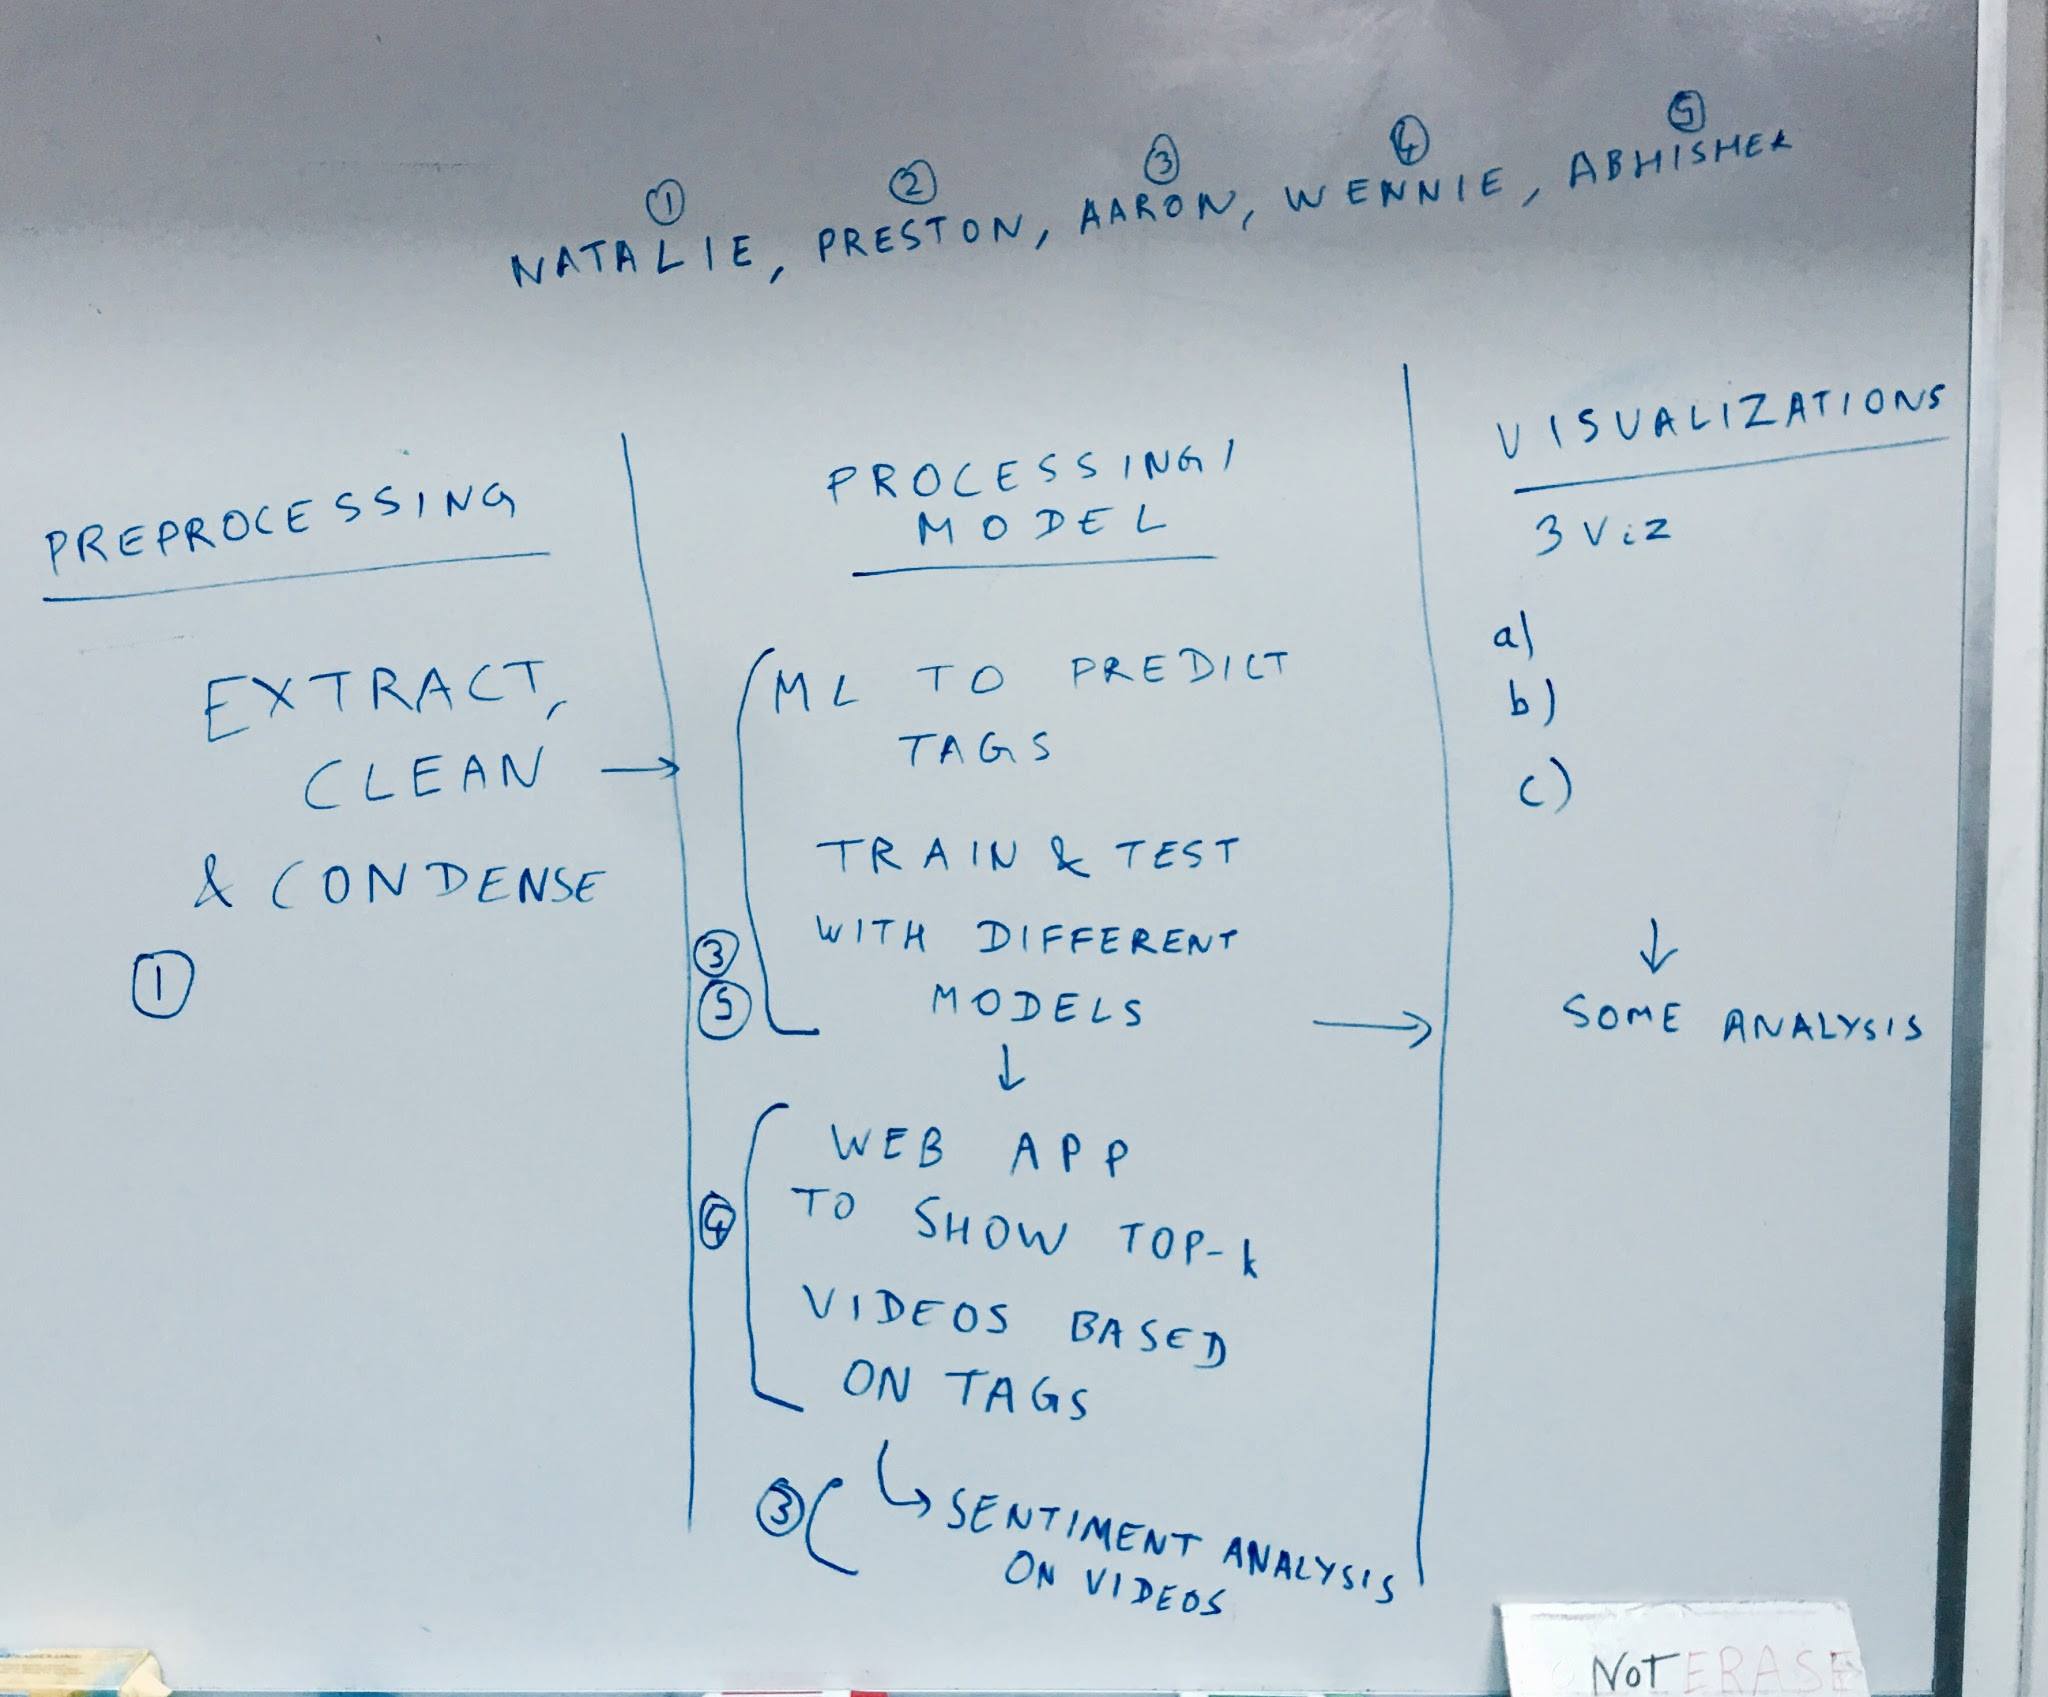 ① ② ③ ④ ⑤
NATALIE, PRESTON, AARON, WENNIE, ABHISHEK
PREPROCESSING
EXTRACT,
CLEAN →
& CONDENSE
①
PROCESSING/
MODEL
ML TO PREDICT
TAGS
TRAIN & TEST
③ WITH DIFFERENT
⑤ MODELS →
↓
WEB APP
④ TO SHOW TOP-k
VIDEOS BASED
ON TAGS
③ ↳ SENTIMENT ANALYSIS
ON VIDEOS
VISUALIZATIONS
3 Viz
a)
b)
c)
↓
SOME ANALYSIS
NOT ERASE